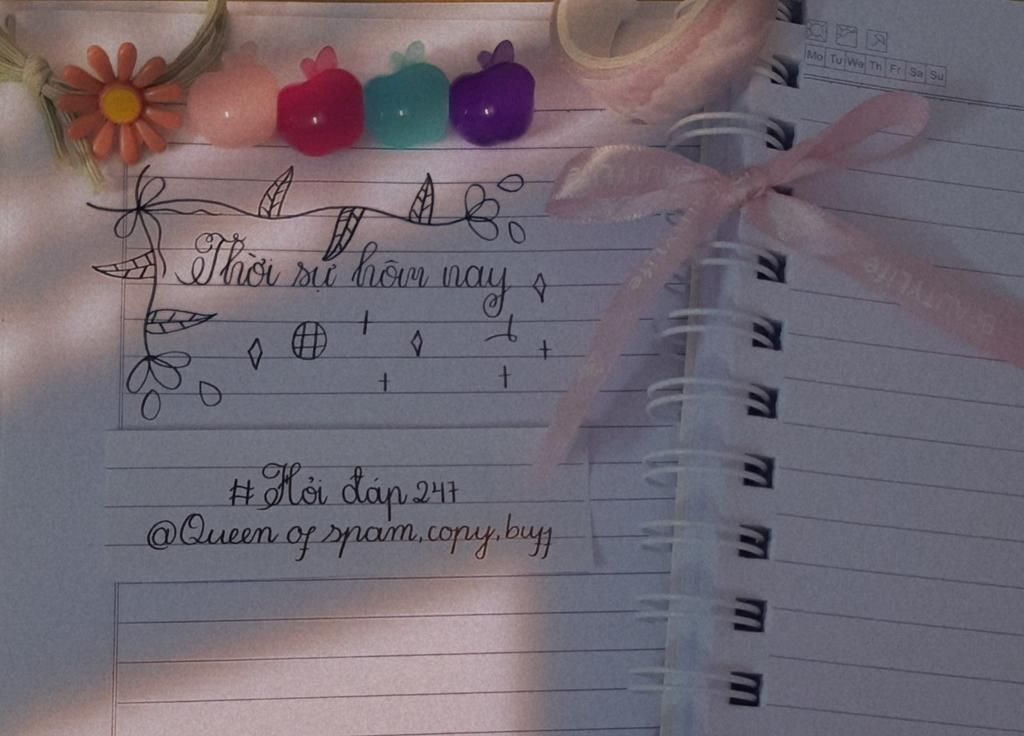 Mo Tu We Th Fr Sa Su
BEAUTYLIFE
BEAUTYLIFE
Thời sự hôm nay
#Hỏi đáp 247
@Queen of spam,copy,buff